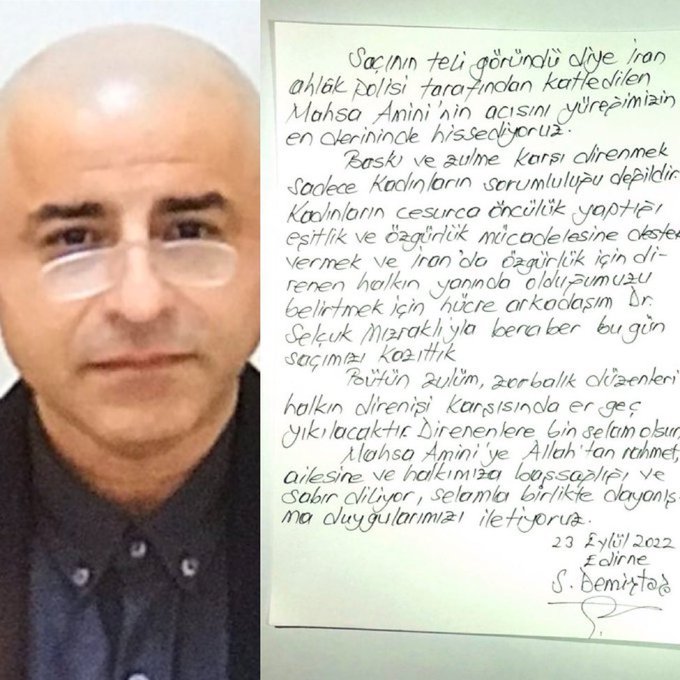 Saçının teli göründü diye İran
ahlâk polisi tarafından katledilen
Mahsa Amini'nin acısını yüreğimizin
en derininde hissediyoruz.
Baskı ve zulme karşı direnmek
sadece kadınların sorumluluğu değildir.
Kadınların cesurca öncülük yaptığı
eşitlik ve özgürlük mücadelesine destek
vermek ve İran'da özgürlük için di-
renen halkın yanında olduğumuzu
belirtmek için hücre arkadaşım Dr.
Selçuk Mızraklı'yla beraber bugün
saçımızı kazıttık
Bütün zulüm, zorbalık düzenleri
halkın direnişi karşısında er geç
yıkılacaktır. Direnenlere bin selam olsun.
Mahsa Amini'ye Allah'tan rahmet,
ailesine ve halkımıza başsağlığı ve
sabır diliyor, selamla birlikte dayanış-
ma duygularımızı iletiyoruz.
23 Eylül 2022
Edirne
S. Demirtaş